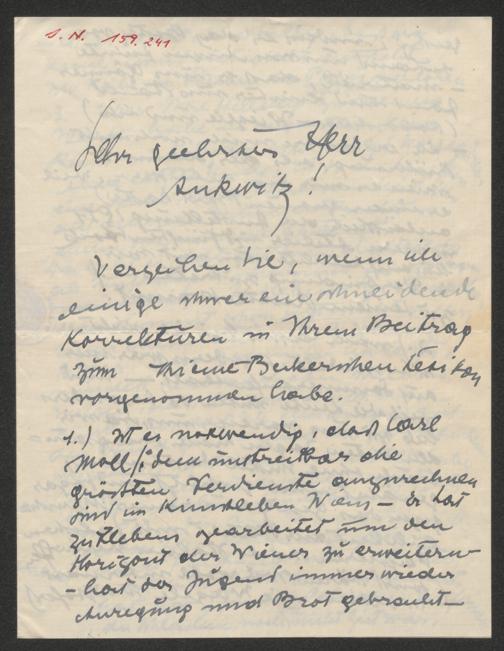 I. N. 159.241
Sehr geehrter Herr
Ankwitz!
Verzeihen Sie, wenn ich
einige schwer einschneidende
Korrekturen in Ihrem Beitrag
zum Thieme Beckerschen Lexikon
vorgenommen habe.
1.) Ist es notwendig, dass Carl
Moll, dem unstreitbar die
grössten Verdienste anzurechnen
sind im Kunstleben Wiens – er hat
zeitlebens gearbeitet um den
Horizont der Wiener zu erweitern –
– hat der Jugend immer wieder
Anregung und Brot gebracht –